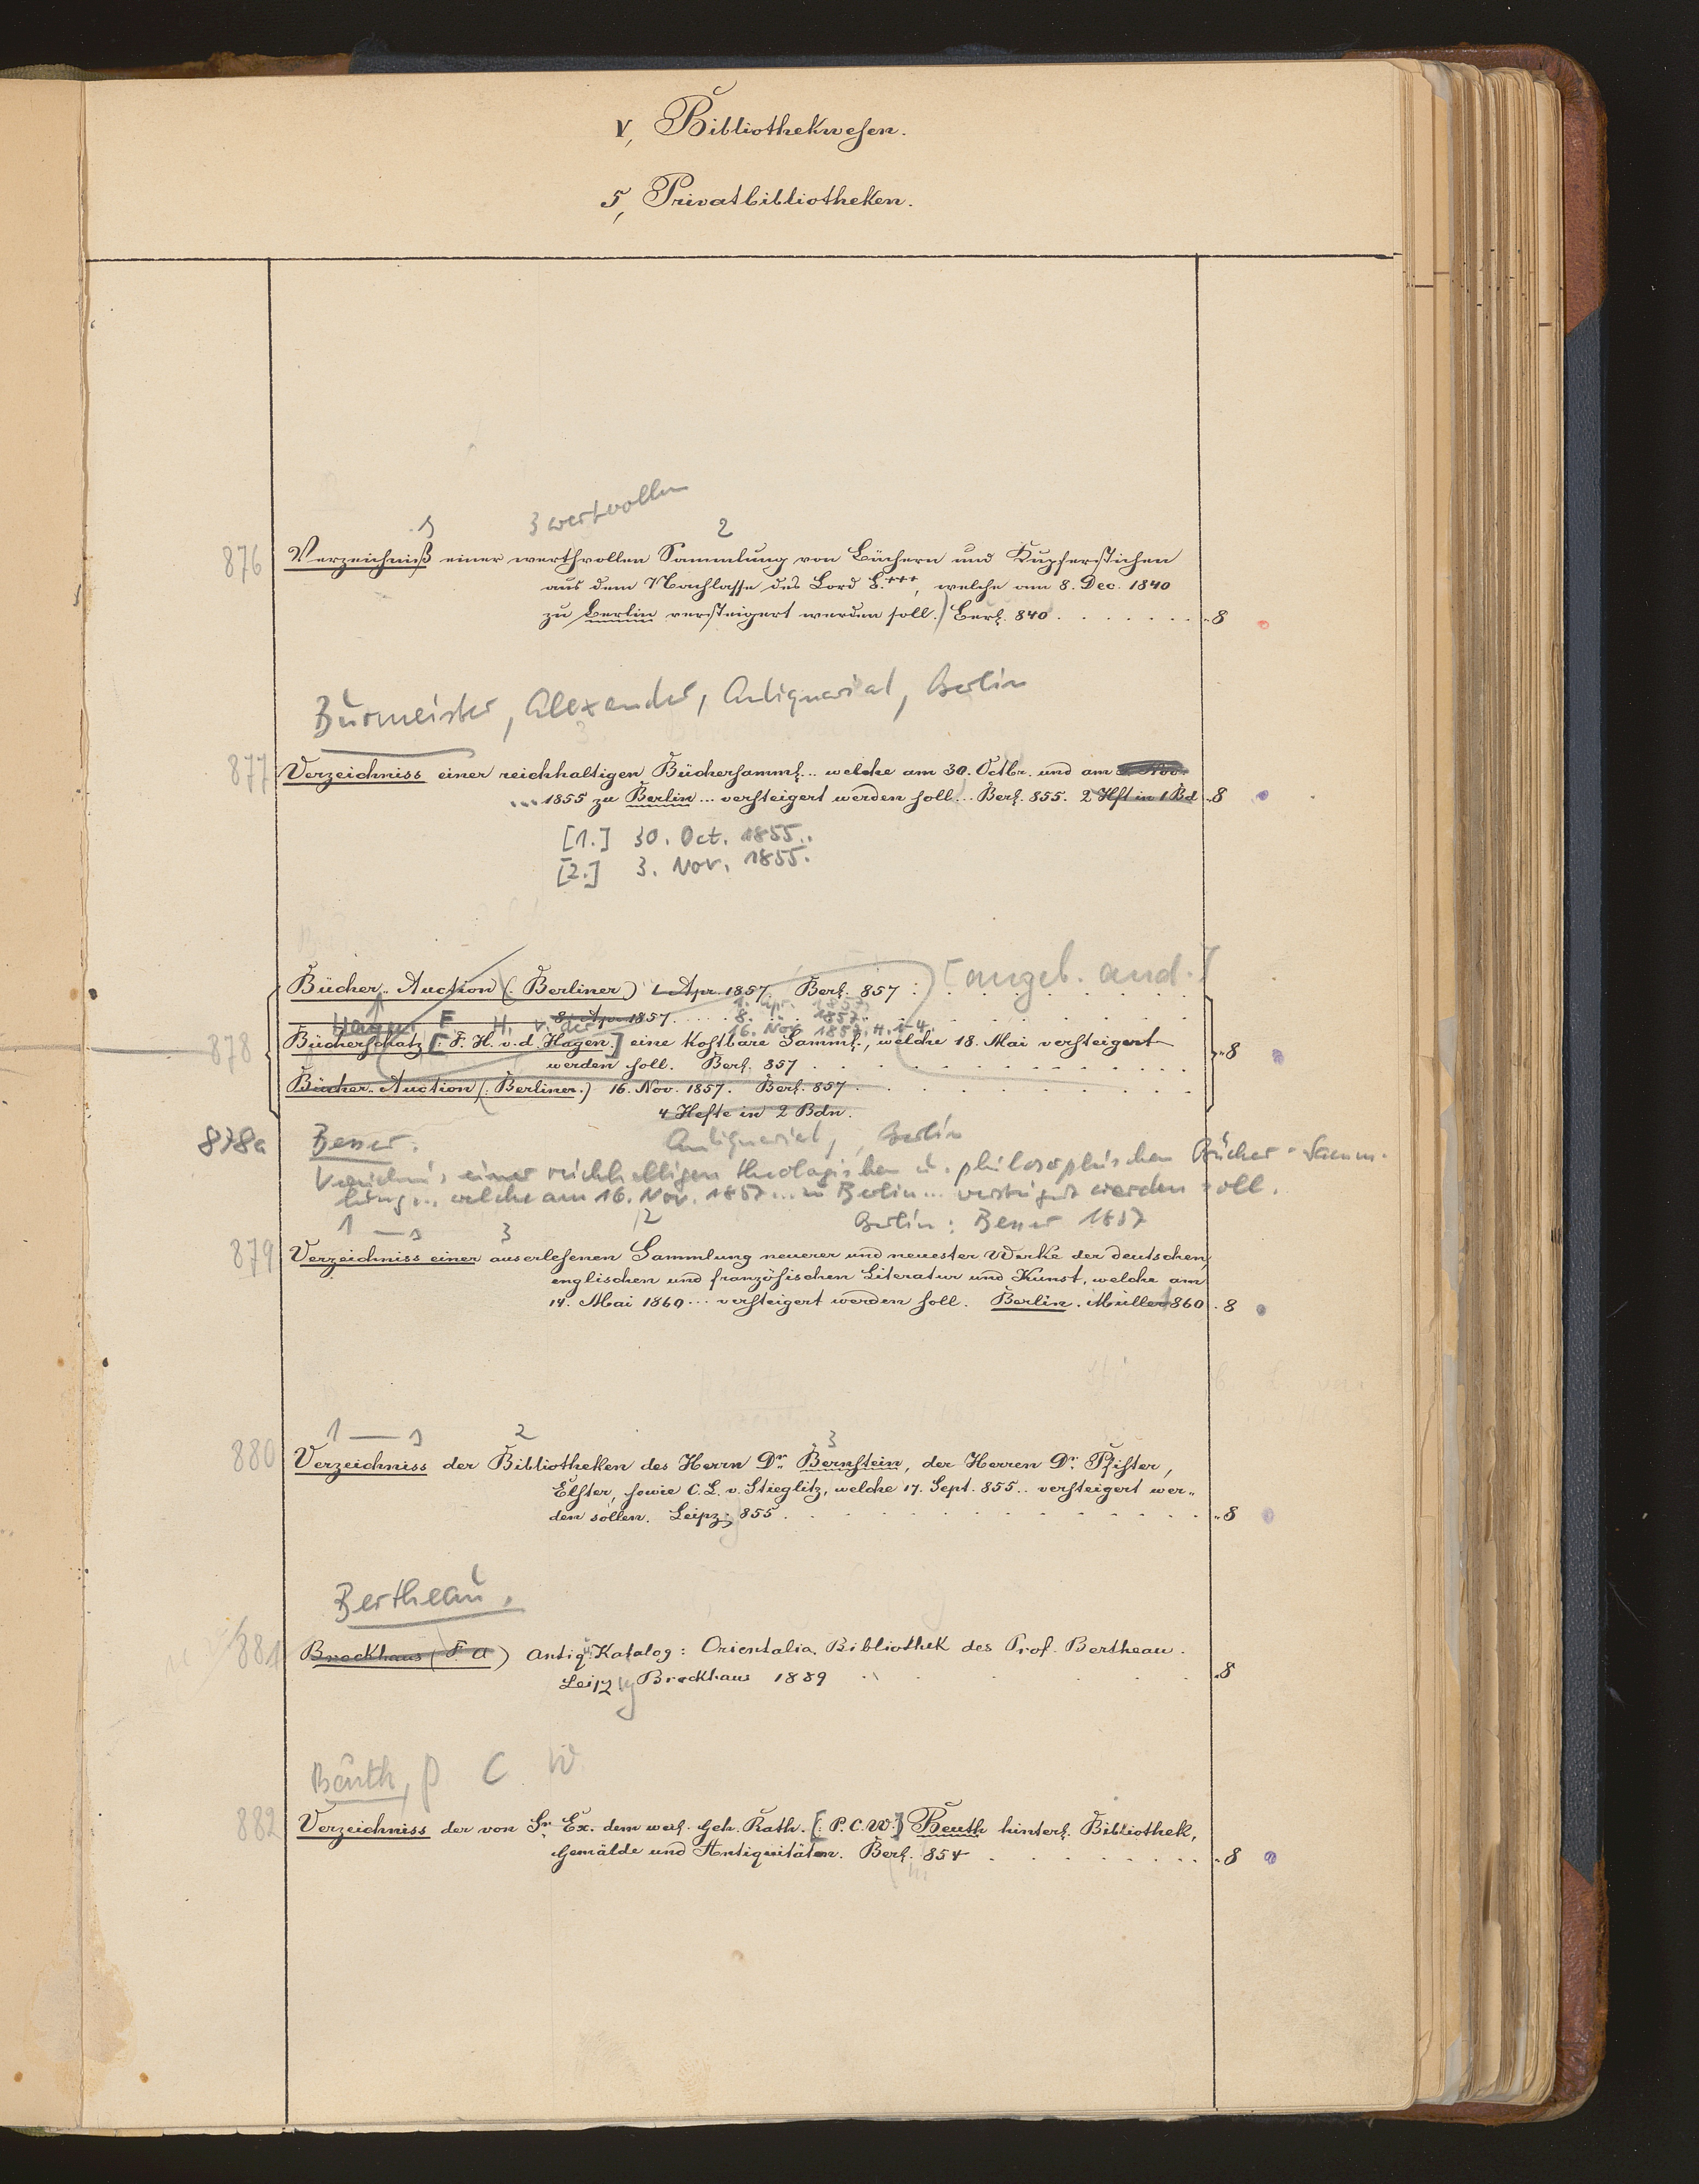 V, Bibliothekwesen.
5, Privatbibliotheken.
3 wertvollen
1 2
876 Verzeichniß einer werthvollen Sammlung von Büchern und Kupferstichen
aus dem Nachlasse des Lord S.+++, welche am 8. Dec. 1840
zu Berlin versteigert werden soll.) Berl. 840 . . . . . . . 8
Burmeister, Alexander, Antiquariat, Berlin
877 Verzeichniss einer reichhaltigen Büchersamml... welche am 30. Octbr. und am 3. Nov.
... 1855 zu Berlin ... versteigert werden soll... Berl. 855. 2 Hft in 1 Bd 8
[1.] 30. Oct. 1855.
[2.] 3. Nov. 1855.
[angeb. and.]
Bücher-Auction (: Berliner.) 1 Apr. 1857. Berl. 857 :
1. Apr. 1857
8. Apr. 1857 . . . . 8. " 1857.
Hagen F H. v. der 16. Nov. 1857. H. 1-4.
878 Bücherschatz [: F. H. v. d. Hagen.] eine kostbare Samml., welche 18. Mai versteigert
werden soll. Berl. 857 . . . 8
Bücher-Auction (: Berliner.) 16. Nov. 1857. Berl. 857
4 Hefte in 2 Bdn.
878a Besser. Antiquariat, Berlin
Verzeichnis einer reichhaltigen theologischen u. philosophischen Bücher-Samm-
lung... welche am 16. Nov. 1857... zu Berlin... versteigert werden soll.
Berlin: Besser 1857
1 — 1 3 2
879 Verzeichniss einer auserlesenen Sammlung neuerer und neuester Werke der deutschen,
englischen und französischen Literatur und Kunst, welche am
14. Mai 1860 ... versteigert werden soll. Berlin. Müller 1860 . 8
1 — 1 2 3
880 Verzeichniss der Bibliotheken des Herrn Dr. Bernstein, der Herren Dr. Pfister,
Elster, sowie C. L. v. Stieglitz, welche 17. Sept. 855.. versteigert wer-
den sollen. Leipz. 855 . . . 8
Bertheau.
881 Brockhaus (F A) Antiq. Katalog: Orientalia. Bibliothek des Prof. Bertheau.
Leipzig Brockhaus 1889 . . . 8
Beuth, P C W
882 Verzeichniss der von Sr. Ex. dem werl. Geh. Rath. [: P. C. W.] Beuth hinterl. Bibliothek,
Gemälde und Antiquitäten. Berl. 854 . . . 8